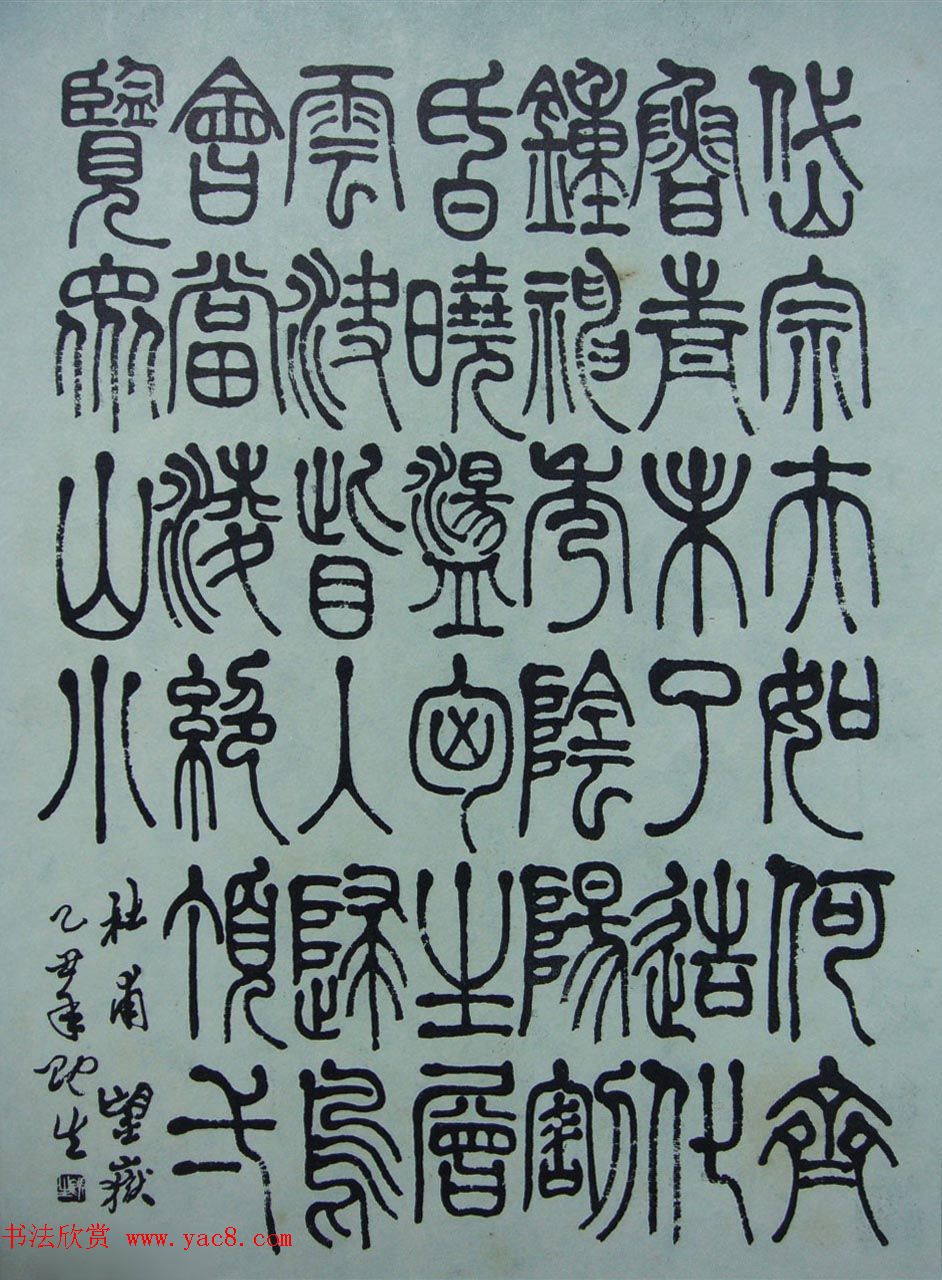 岱宗夫如何齊
魯青未了造化
鍾神秀陰陽割
昏曉盪匈生曾
雲決眥人歸鳥
會當淩絕頂弌
覽眾山小
杜甫望嶽
乙丑年
书法欣赏 www.yac8.com